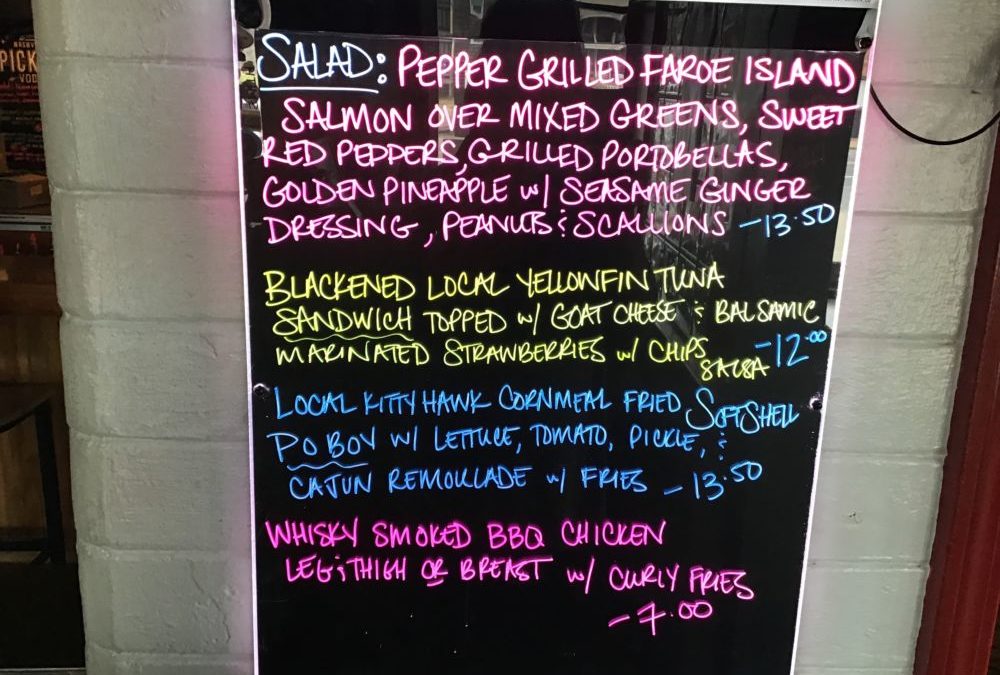 PICK
VOD
SALAD: PEPPER GRILLED FAROE ISLAND
SALMON OVER MIXED GREENS, SWEET
RED PEPPERS, GRILLED PORTOBELLAS,
GOLDEN PINEAPPLE w/ SEASAME GINGER
DRESSING, PEANUTS & SCALLIONS -13.50
BLACKENED LOCAL YELLOWFIN TUNA
SANDWICH TOPPED w/ GOAT CHEESE & BALSAMIC
MARINATED STRAWBERRIES w/ CHIPS
SALSA -12.00
LOCAL KITTY HAWK CORNMEAL FRIED SOFTSHELL
PO BOY w/ LETTUCE, TOMATO, PICKLE, &
CAJUN REMOULADE w/ FRIES - 13.50
WHISKY SMOKED BBQ CHICKEN
LEG & THIGH OR BREAST w/ CURLY FRIES
-7.00